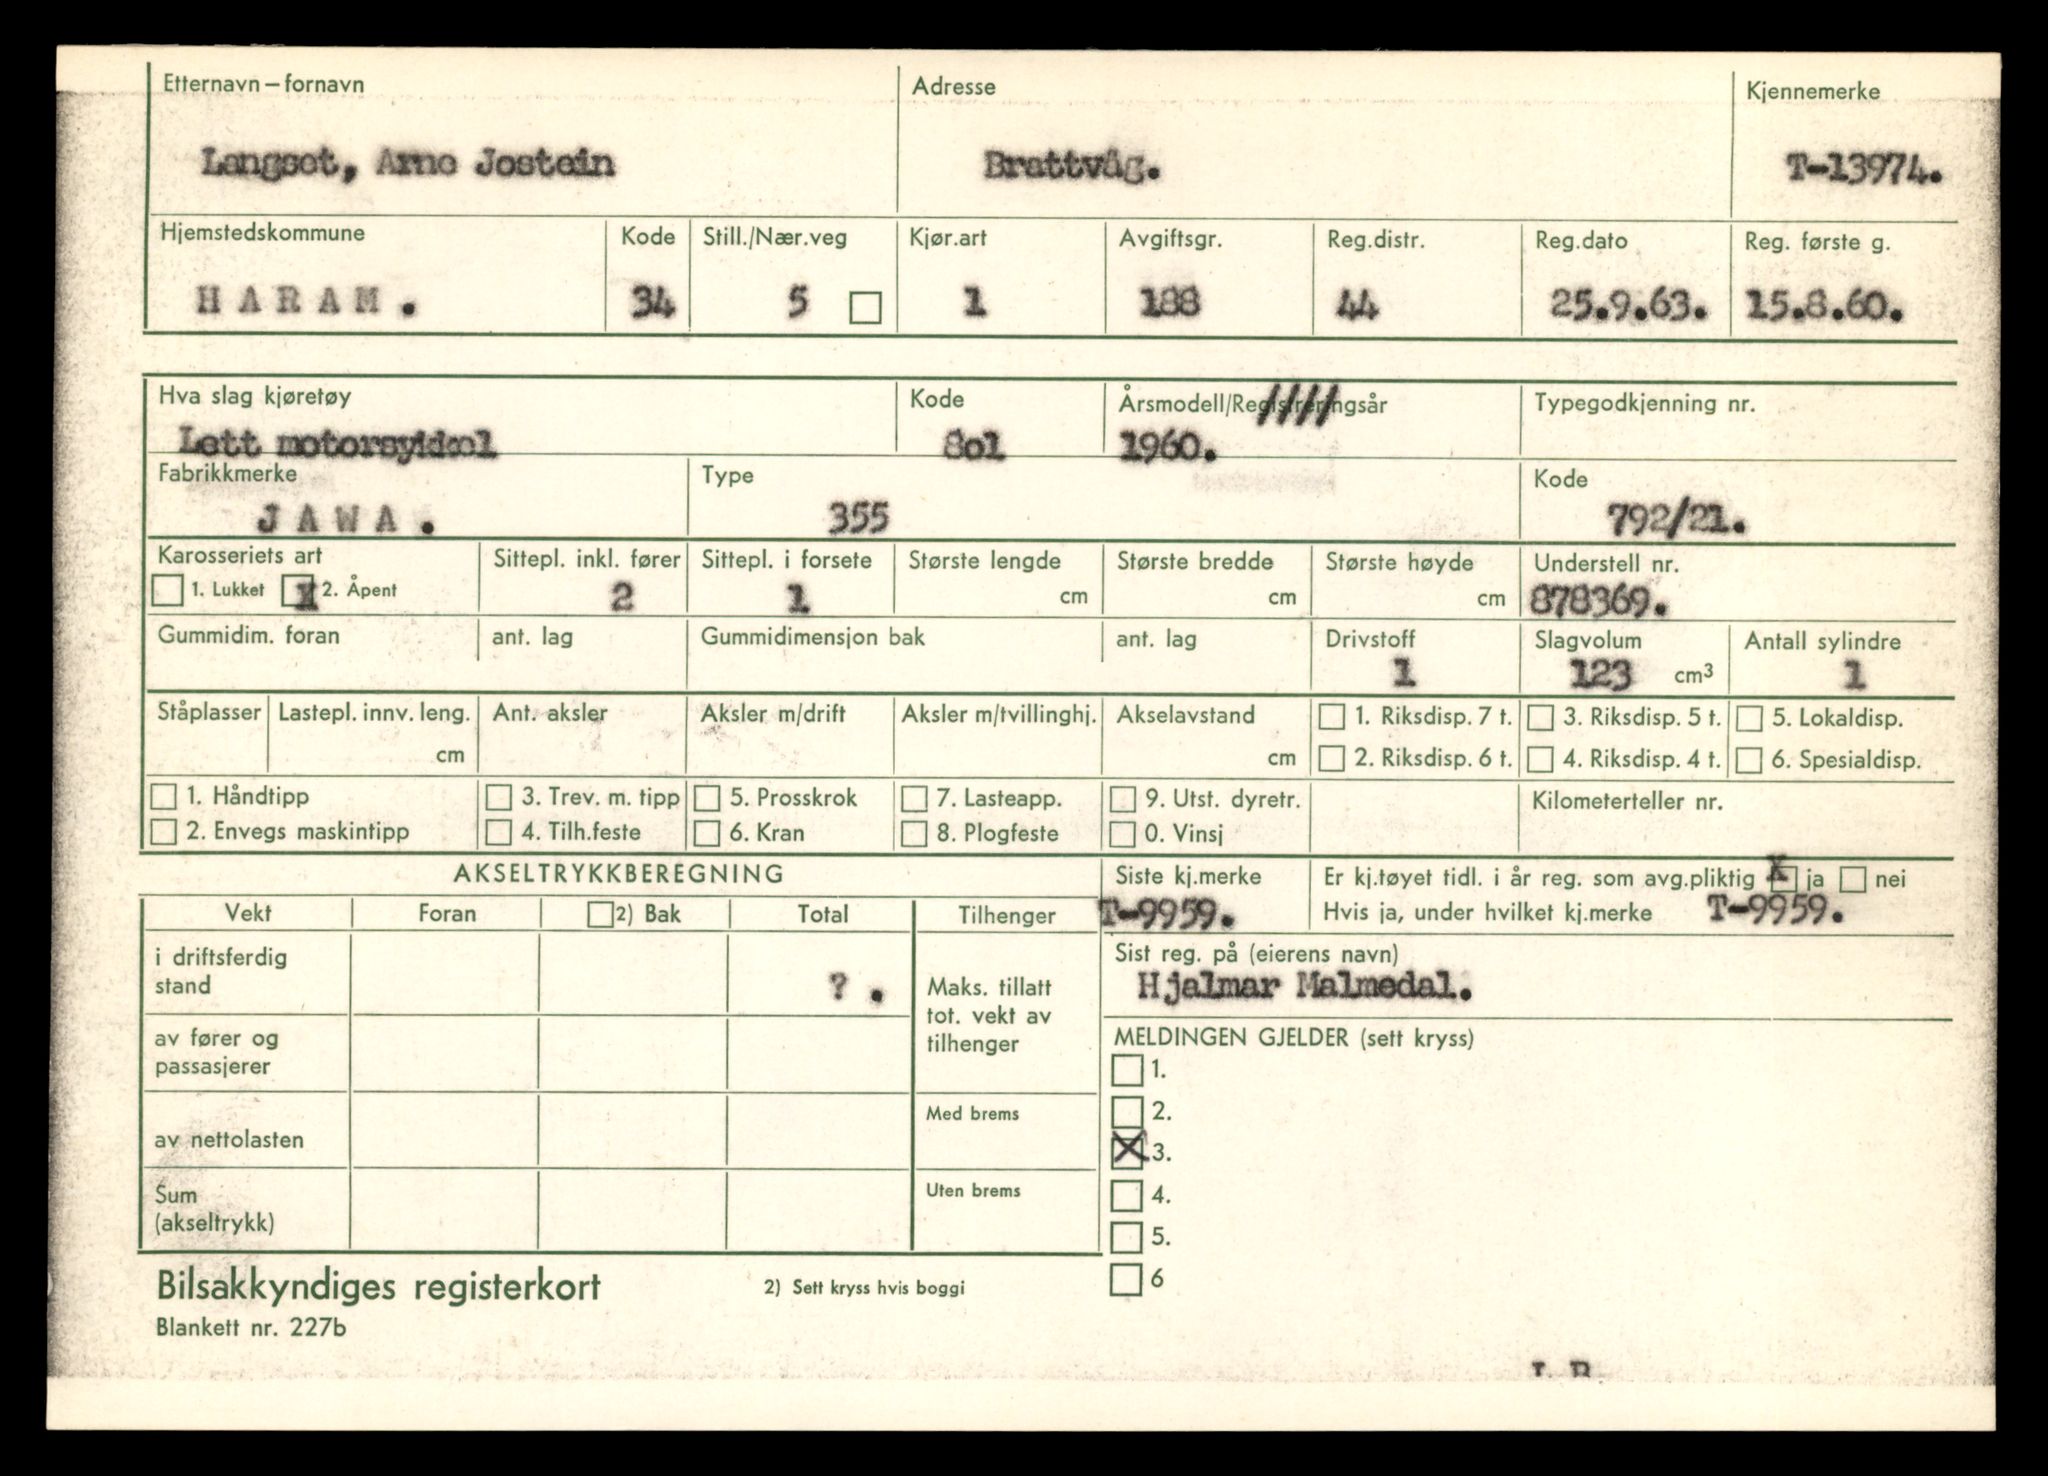 Etternavn – fornavn Adresse Kjennemerke
Langset, Arne Jostein Brattvåg. T-13974.
Hjemstedskommune Kode Still./Nær.veg Kjør.art Avgiftsgr. Reg.distr. Reg.dato Reg. første g.
HARAM. 34 5 1 188 44 25.9.63. 15.8.60.
Hva slag kjøretøy Kode Årsmodell/Registreringsår Typegodkjenning nr.
Lett motorsykkel 8o1 1960.
Fabrikkmerke Type Kode
JAWA. 355 792/21.
Karosseriets art Sittepl. inkl. fører Sittepl. i forsete Største lengde Største bredde Største høyde Understell nr.
1. Lukket X 2. Åpent 2 1 cm cm cm 878369.
Gummidim. foran ant. lag Gummidimensjon bak ant. lag Drivstoff Slagvolum Antall sylindre
1 123 cm3 1
Ståplasser Lastepl. innv. leng. Ant. aksler Aksler m/drift Aksler m/tvillinghj. Akselavstand 1. Riksdisp. 7 t. 3. Riksdisp. 5 t. 5. Lokaldisp.
cm cm 2. Riksdisp. 6 t. 4. Riksdisp. 4 t. 6. Spesialdisp.
1. Håndtipp 3. Trev. m. tipp 5. Prosskrok 7. Lasteapp. 9. Utst. dyretr. Kilometerteller nr.
2. Envegs maskintipp 4. Tilh.feste 6. Kran 8. Plogfeste 0. Vinsj
AKSELTRYKKBEREGNING Siste kj.merke Er kj.tøyet tidl. i år reg. som avg.pliktig X ja nei
Vekt Foran 2) Bak Total Tilhenger T-9959. Hvis ja, under hvilket kj.merke T-9959.
i driftsferdig stand ?. Maks. tillatt tot. vekt av tilhenger
Sist reg. på (eierens navn)
Hjalmar Malmedal.
av fører og passasjerer
MELDINGEN GJELDER (sett kryss)
1.
av nettolasten Med brems 2.
X 3.
Sum (akseltrykk) Uten brems 4.
5.
6
Bilsakkyndiges registerkort 2) Sett kryss hvis boggi
Blankett nr. 227b